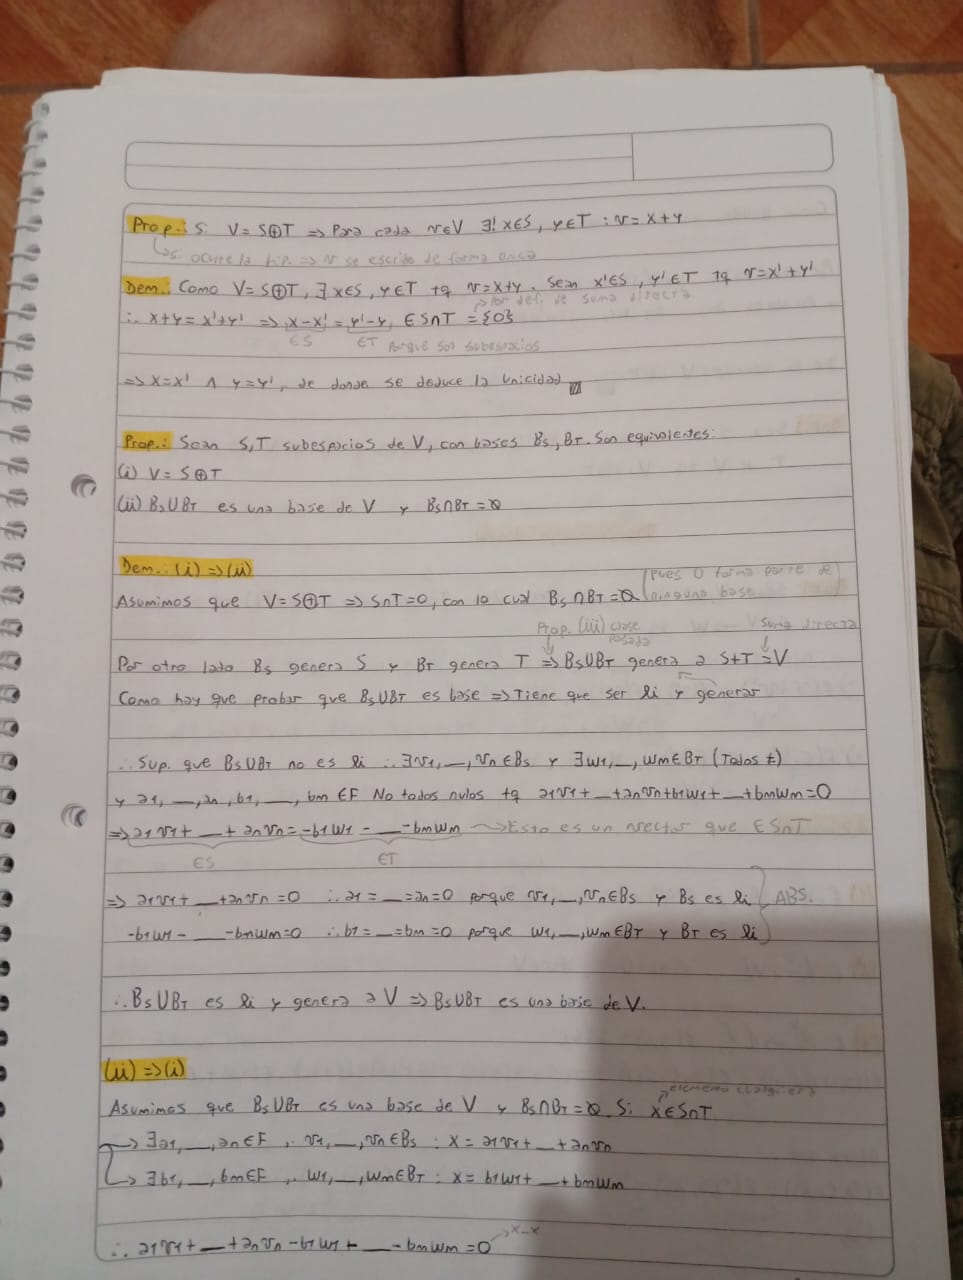 Prop.: Si V = S⊕T => Para cada v∈V ∃! x∈S, y∈T : v = x+y
↳ Si ocurre la hip. => v se escribe de forma única
Dem.: Como V = S⊕T, ∃ x∈S, y∈T tq v = x+y. Sean x'∈S, y'∈T tq v = x'+y'
↗ Por defi. de suma directa
∴ x+y = x'+y' => x-x' = y'-y, ∈ S∩T = {0}
∈S ∈T Porque son subespacios
=> x=x' ∧ y=y', de donde se deduce la unicidad
Prop.: Sean S,T subespacios de V, con bases Bs, BT. Son equivalentes:
(i) V = S⊕T
(ii) Bs∪BT es una base de V y Bs∩BT = ∅
Dem.: (i) => (ii)
Asumimos que V = S⊕T => S∩T = 0, con lo cual Bs∩BT = ∅ (pues 0 forma parte de ninguna base
Prop. (iii) clase pasada Suma directa
Por otro lado Bs genera S y BT genera T => Bs∪BT genera a S+T = V
Como hay que probar que Bs∪BT es base => Tiene que ser li y generar
∴ Sup. que Bs∪BT no es li ∴ ∃ v1, __, vn ∈ Bs y ∃ w1, __, wm ∈ BT (Todos ≠)
y a1, __, an, b1, __, bm ∈ F No todos nulos tq a1v1 + __ + anvn + b1w1 + __ + bmwm = 0
=> a1v1 + __ + anvn = -b1w1 - __ - bmwm → Esto es un vector que ∈ S∩T
∈S ∈T
=> a1v1 + __ + anvn = 0 ∴ a1 = __ = an = 0 porque v1, __, vn ∈ Bs y Bs es li } ABS.
-b1w1 - __ - bmwm = 0 ∴ b1 = __ = bm = 0 porque w1, __, wm ∈ BT y BT es li
∴ Bs∪BT es li y genera a V => Bs∪BT es una base de V.
(ii) => (i)
elemento cualquiera
Asumimos que Bs∪BT es una base de V y Bs∩BT = ∅. Si x∈S∩T
→ ∃ a1, __, an ∈ F, ∴ v1, __, vn ∈ Bs : x = a1v1 + __ + anvn
→ ∃ b1, __, bm ∈ F ,, w1, __, wm ∈ BT : x = b1w1 + __ + bmwm
∴ a1v1 + __ + anvn - b1w1 + __ - bmwm = 0 → x-x